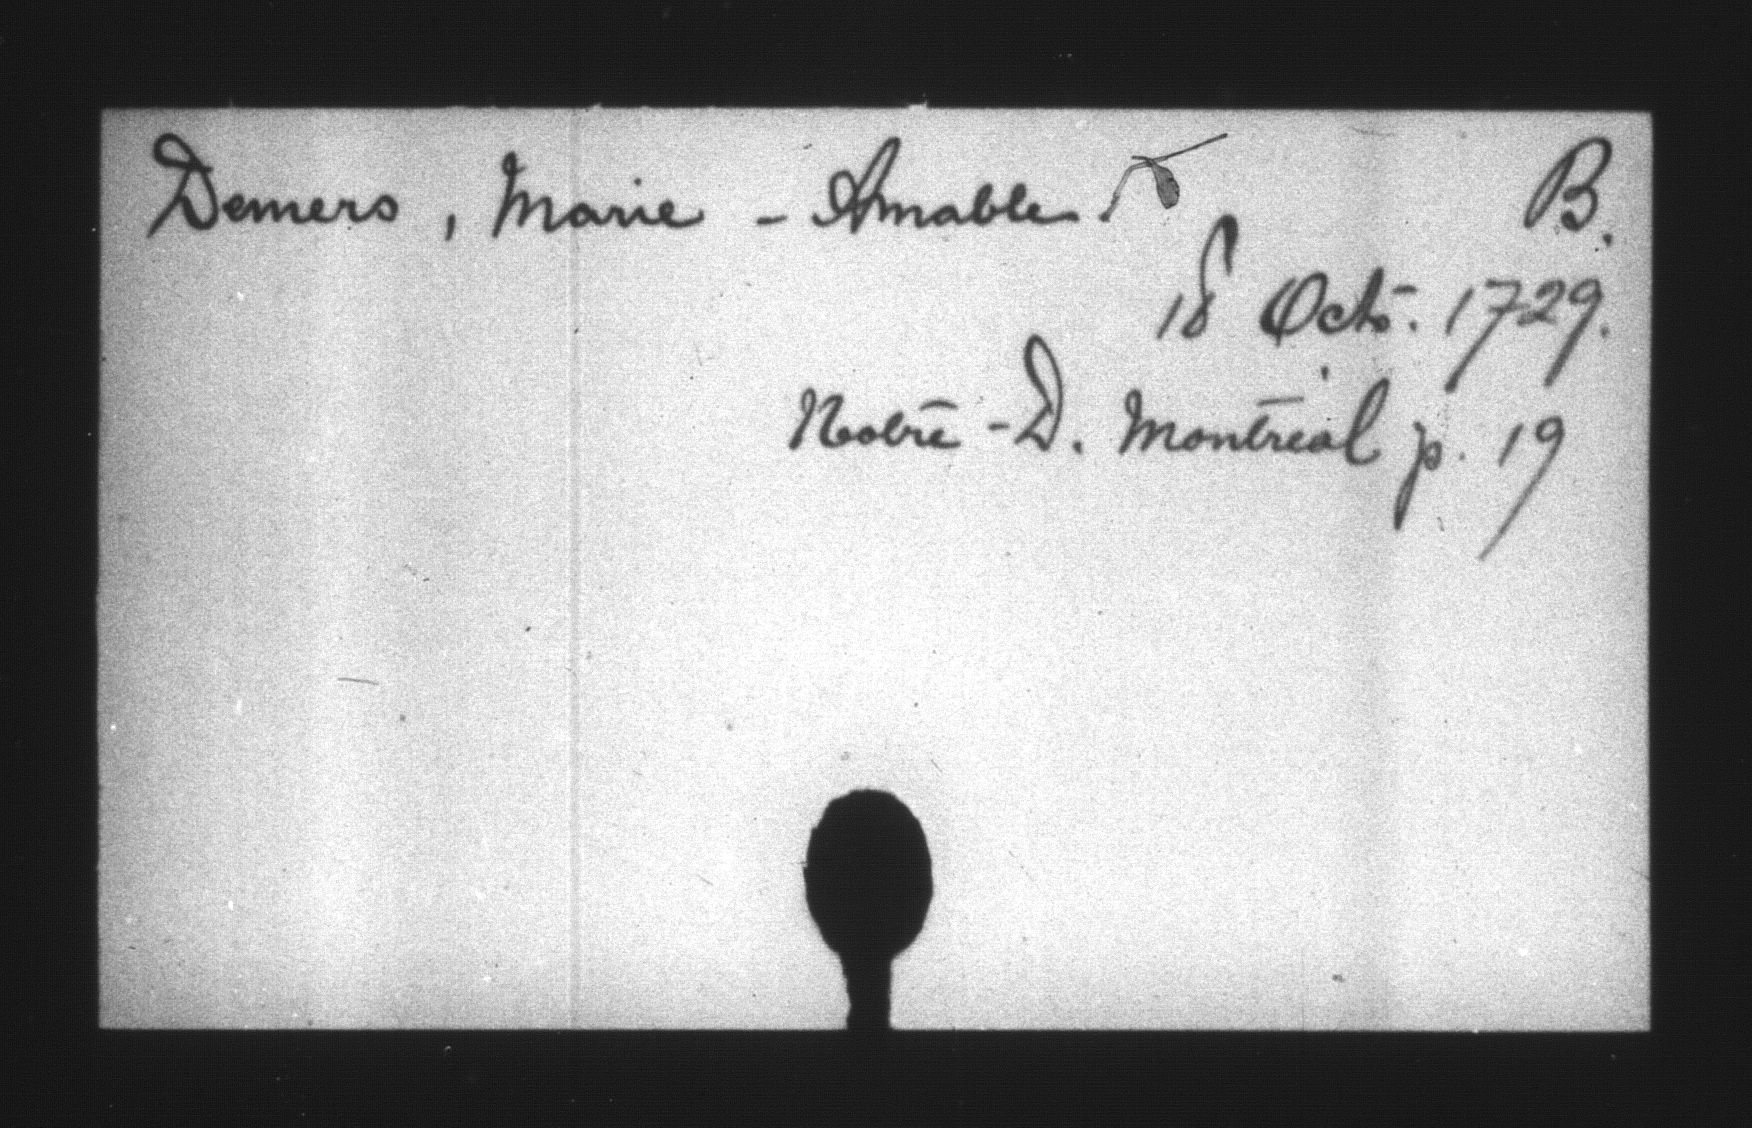 Demers, Marie - Amable. B.
18 Octo. 1729.
Notre - D. Montréal p. 19